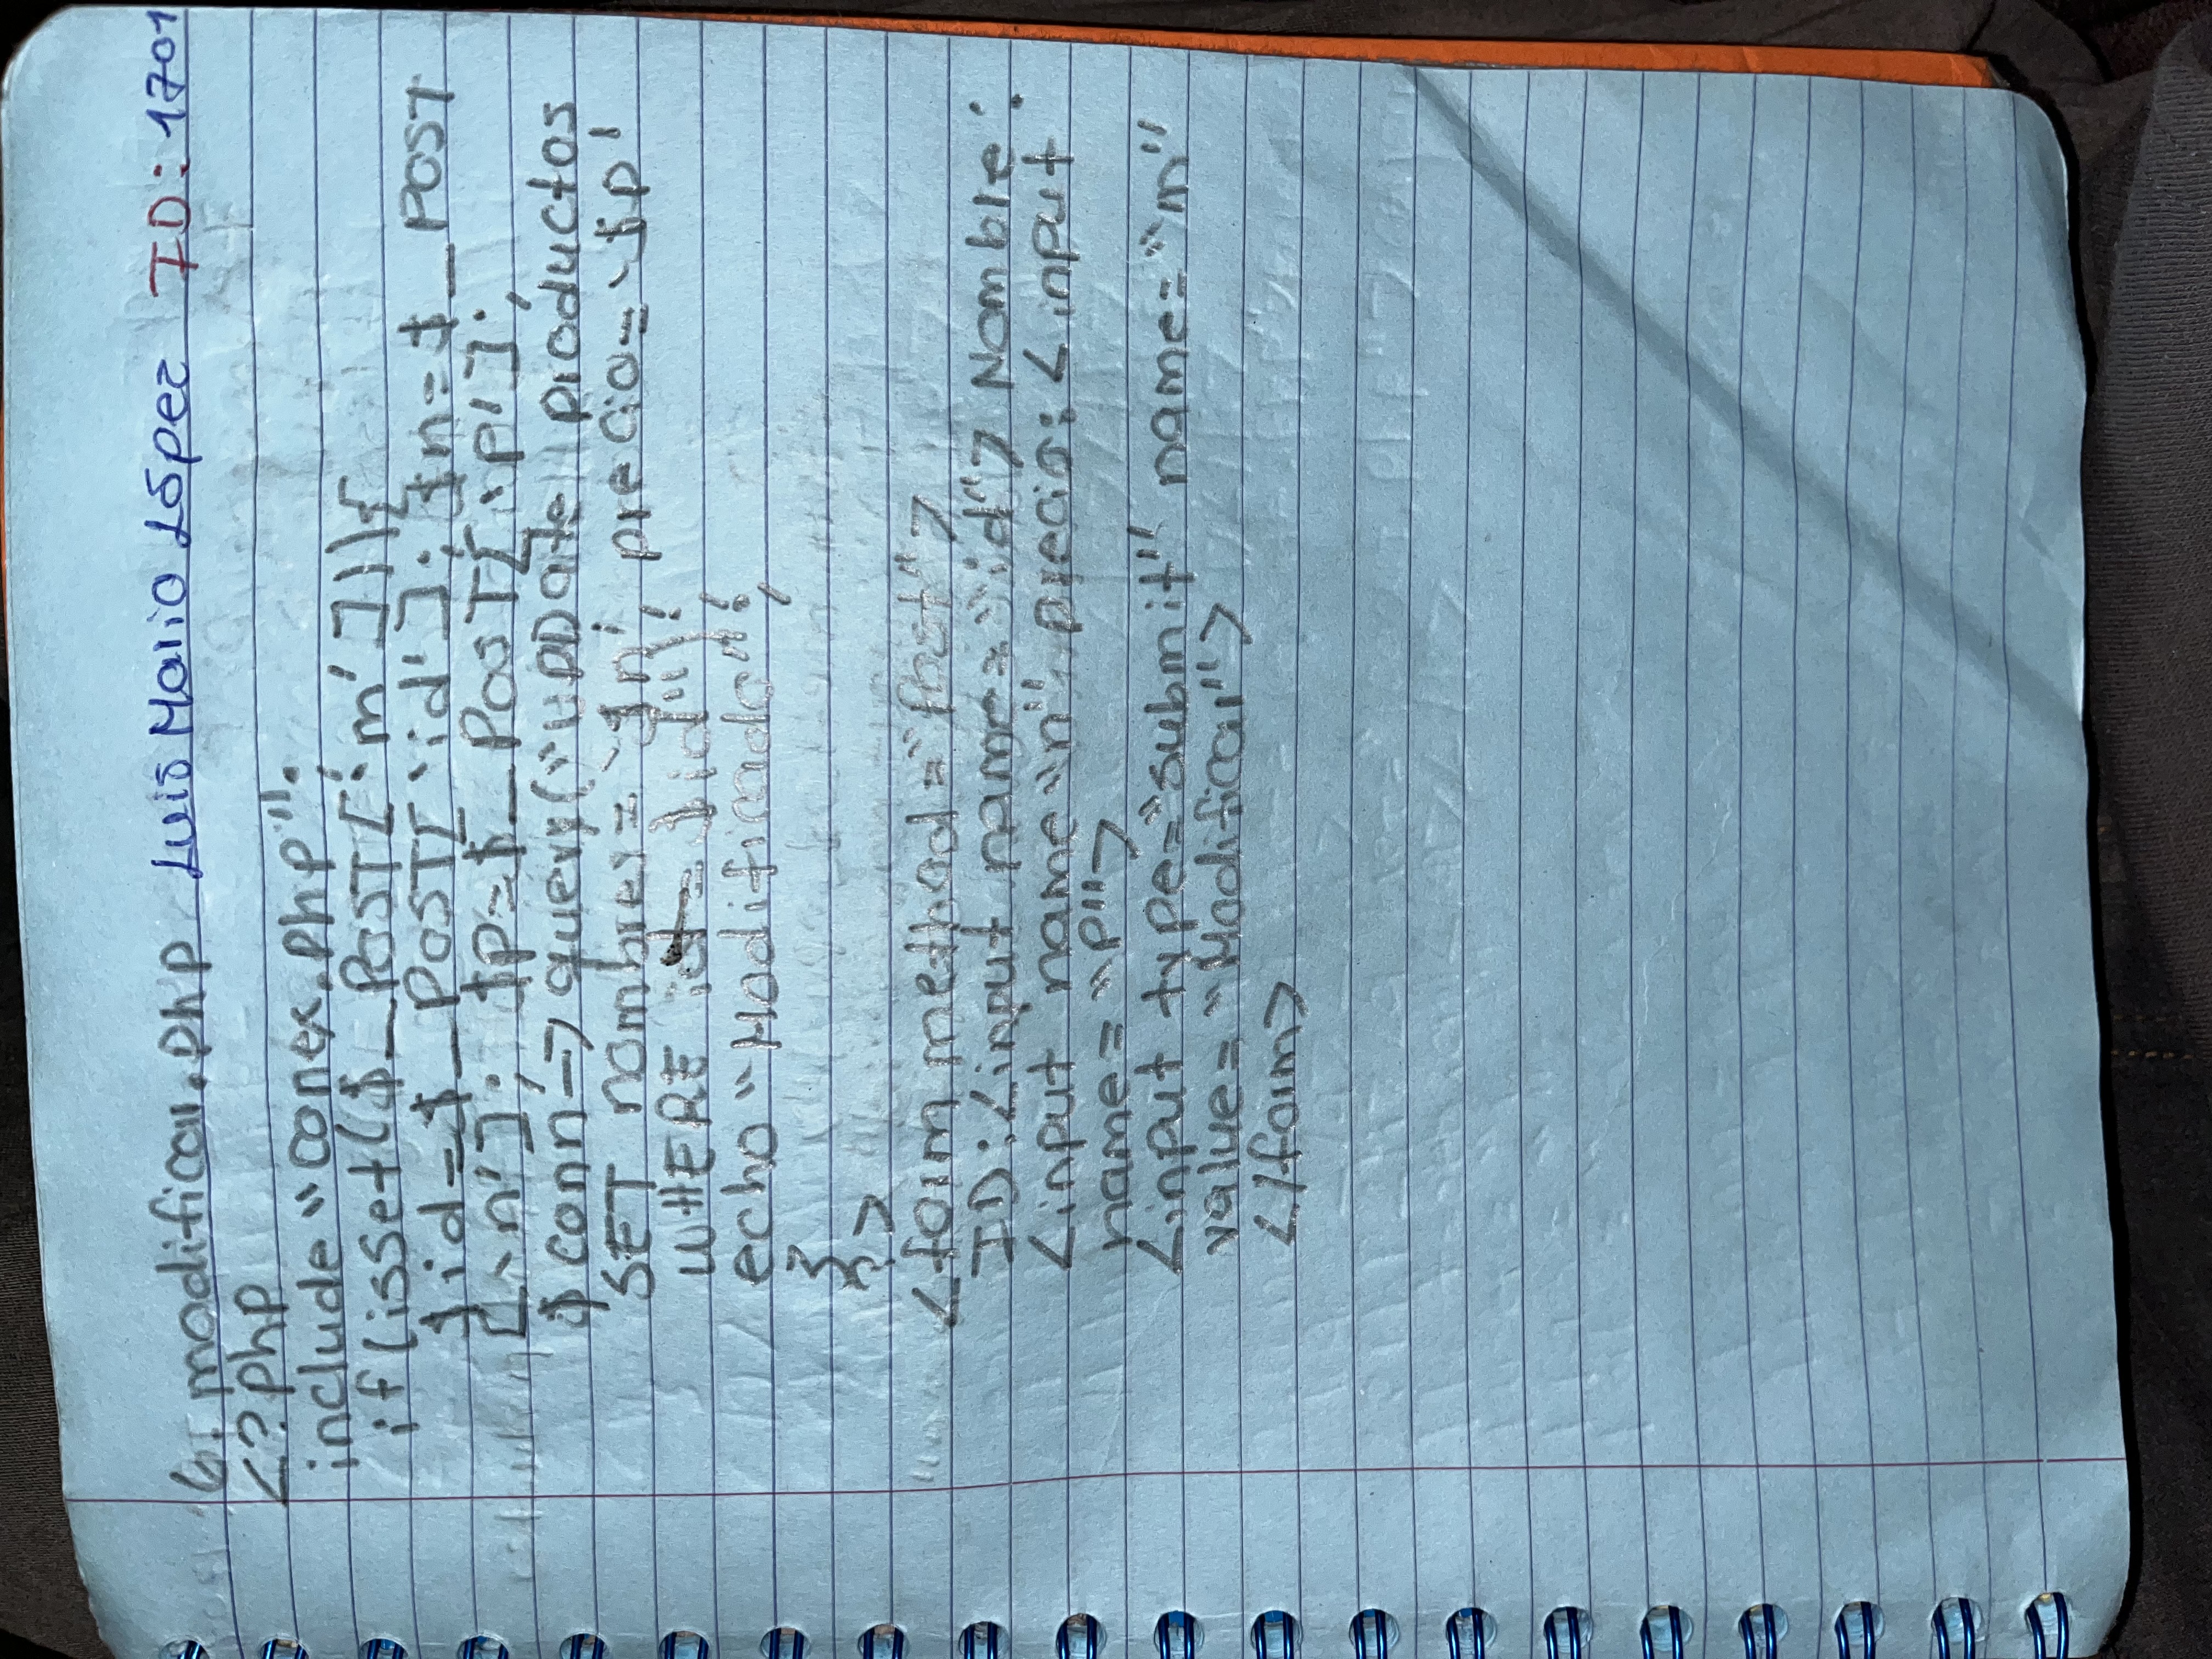 6. modificar.php Luis Mario López ID: 1701
<?php
include "conex.php".
if(isset($_POST['m'])){
$id=$_POST['id']; $n=$_POST
['n']; $p=$_POST['p'];
$conn->query("UPDate productos
SET nombre='$n' precio='$p'
WHERE id=$id");
echo "Modificado";
}
?>
<form method="post">
ID:<input name="id"> Nombre:
<input name"n" precio: <input
name="p">
<input type="submit" name="m"
value="Modificar">
</form>